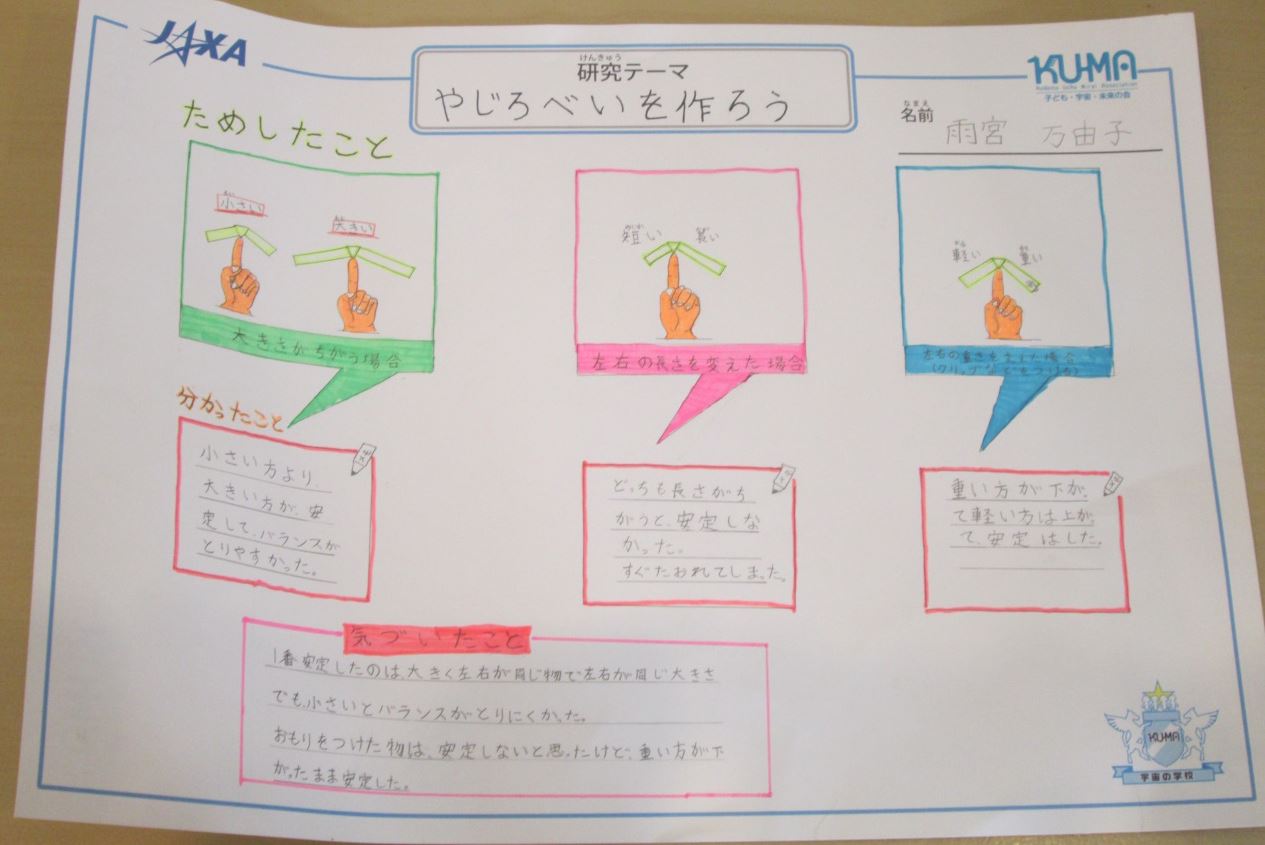 JAXA
けんきゅう
研究テーマ
やじろべいを作ろう
KU-MA
子ども・宇宙・未来の会
なまえ
名前
雨宮 万由子
ためしたこと
小さい
大きい
大きさがちがう場合
短い 長い
左右の長さを変えた場合
軽い 重い
左右の重さを変えた場合
(クリップなどをつける)
分かったこと
小さい方より、
大きい方が、安
定して、バランスが
とりやすかった。
どっちも長さがち
がうと、安定しな
かった。
すぐたおれてしまった。
重い方が下が、
て軽い方は上が、
て、安定はした。
気づいたこと
1番安定したのは、大きく左右が同じ物で左右が同じ大きさ
でも、小さいとバランスがとりにくかった。
おもりをつけた物は、安定しないと思ったけど、重い方が下
がったまま安定した。
KUMA
宇宙の学校